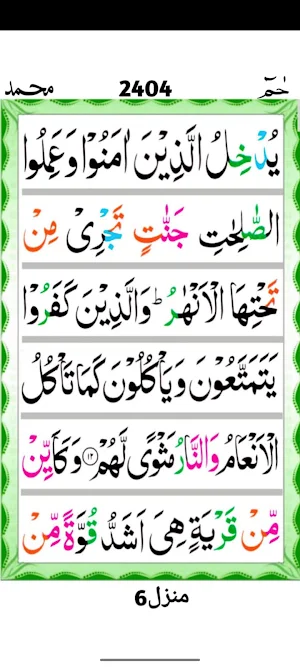 حٰمٓ 2404 محمد
يُدْخِلُ الَّذِيْنَ اٰمَنُوْا وَعَمِلُوا
الصّٰلِحٰتِ جَنّٰتٍ تَجْرِىْ مِنْ
تَحْتِهَا الْاَنْهٰرُ ؕ وَالَّذِيْنَ كَفَرُوْا
يَتَمَتَّعُوْنَ وَيَاْكُلُوْنَ كَمَا تَاْكُلُ
الْاَنْعَامُ وَالنَّارُ مَثْوًى لَّهُمْ ۝۱۲ وَكَاَيِّنْ
مِّنْ قَرْيَةٍ هِىَ اَشَدُّ قُوَّةً مِّنْ
منزل6